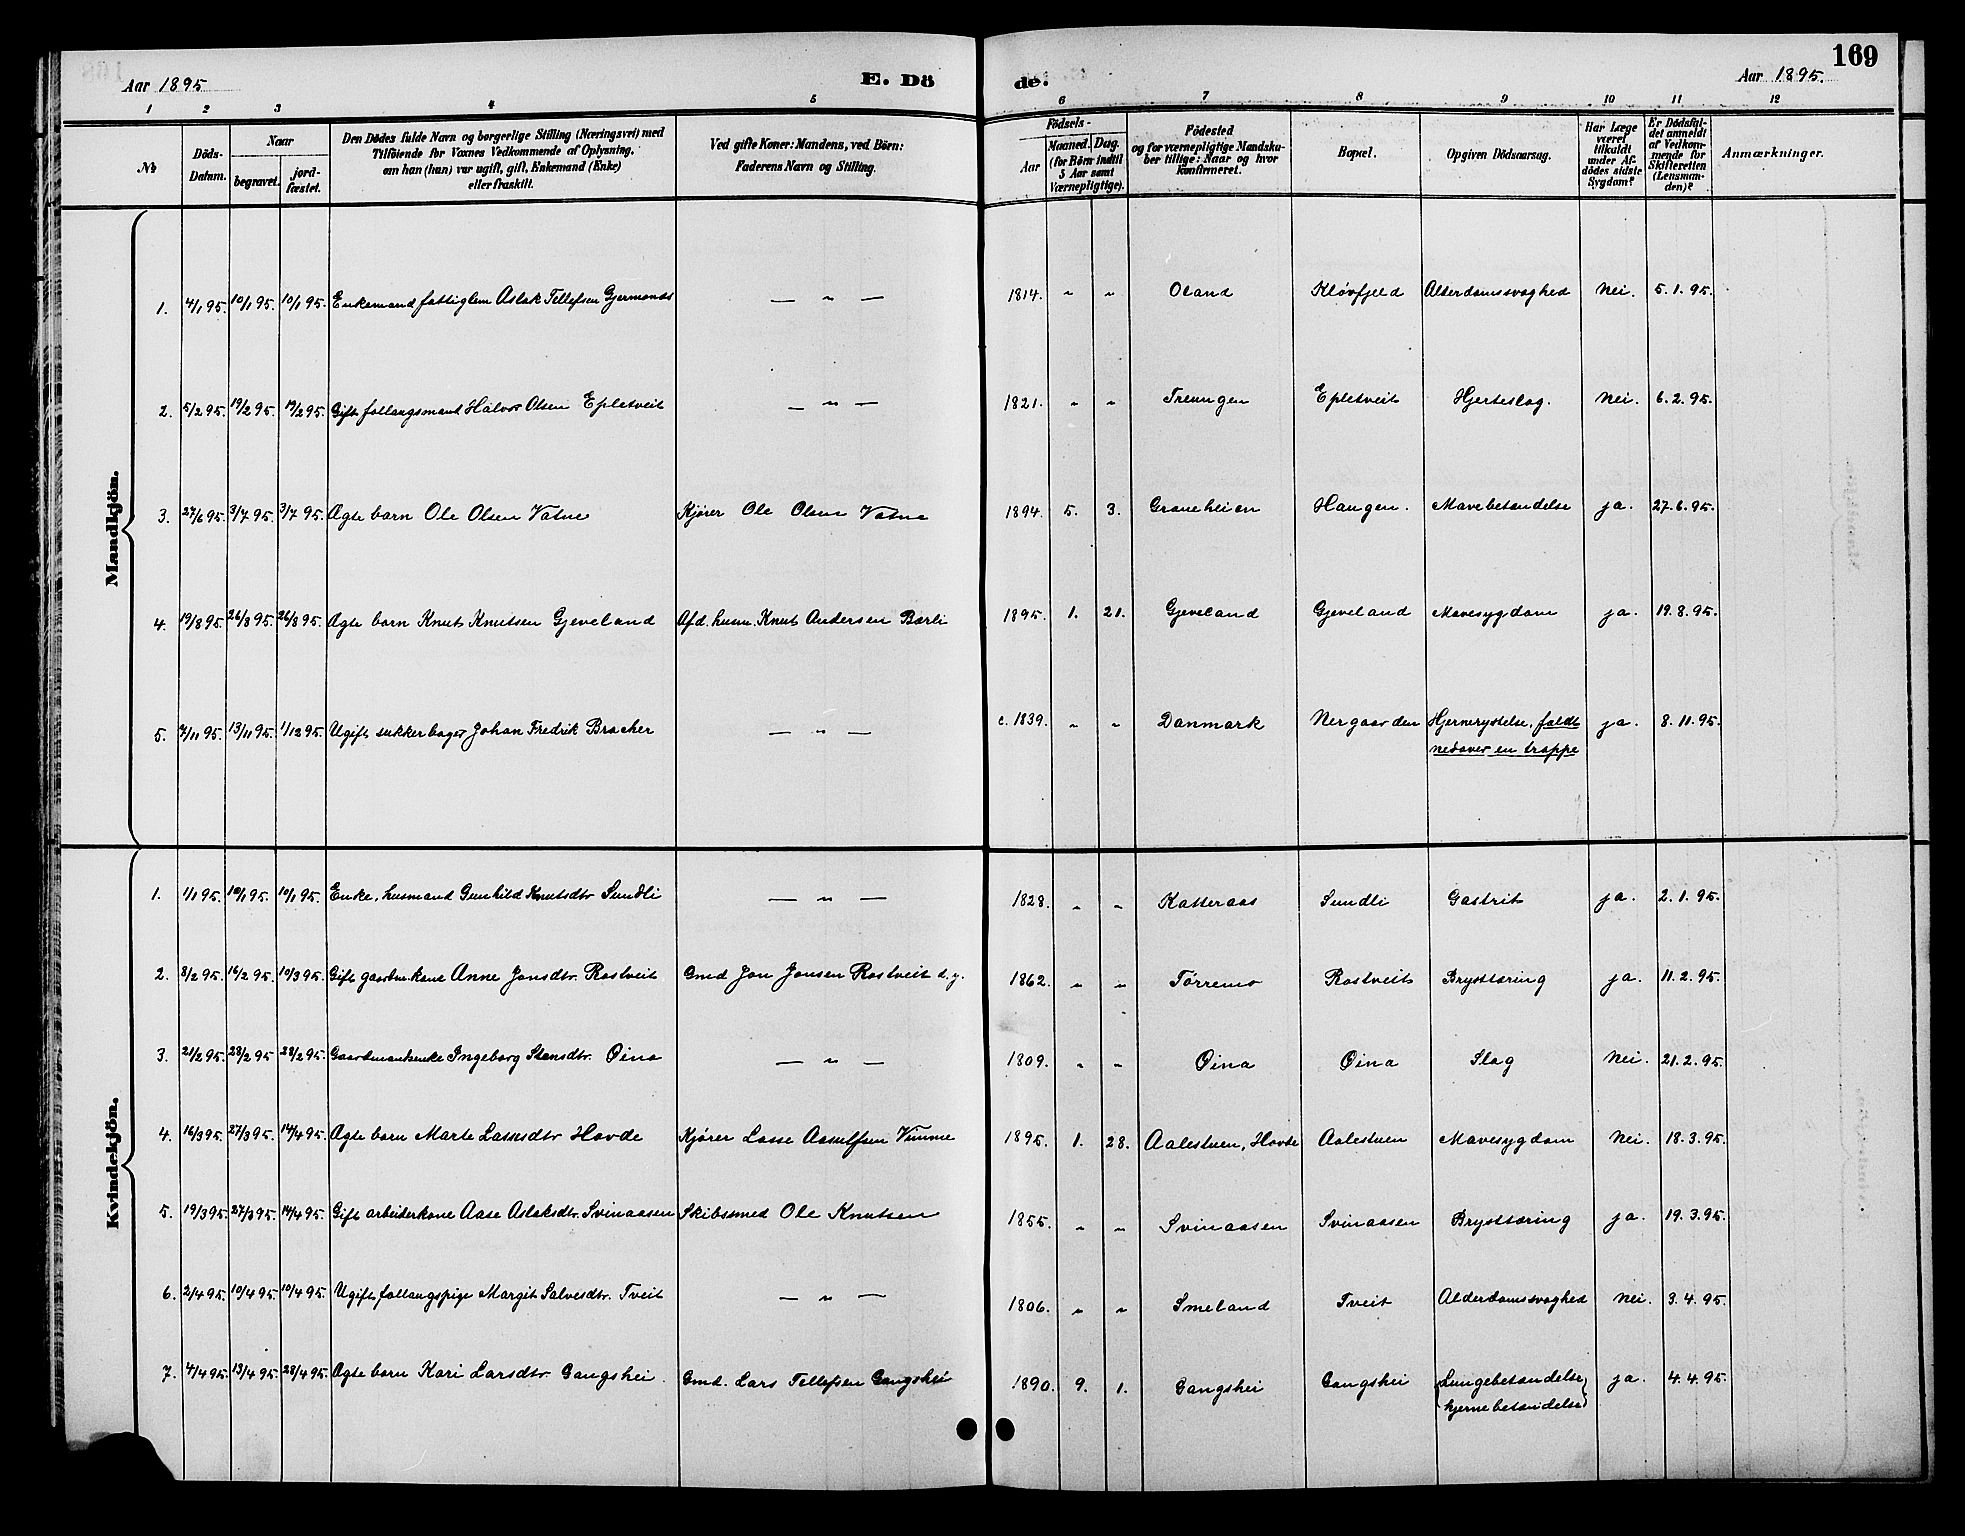 169
Aar 1895
E. Dö
de.
Aar 1895.
1 2 3 4 5 6 7 8 9 10 11 12
№
Döds-
Datum.
Naar
begravet.
jord-
fæstet.
Den Dödes fulde Navn og borgerlige Stilling (Næringsvei) med
Tilföiende for Voxnes Vedkommende af Oplysning,
om han (hun) var ugift, gift, Enkemand (Enke)
eller fraskilt.
Ved gifte Koner: Mandens, ved Börn:
Faderens Navn og Stilling.
Födsels-
Aar
Maaned. Dag.
(for Börn indtil
5 Aar samt
Værnepligtige).
Födested
og for værnepligtige Mandska-
ber tillige: Naar og hvor
konfirmeret.
Bopæl.
Opgiven Dödsaarsag.
Har Læge
været
tilkaldt
under Af-
dödes sidste
Sygdom?
Er Dödsfal-
det anmeldt
af Vedkom-
mende for
Skifteretten
(Lensman-
den)?
Anmærkninger.
Mandkjön.
1. 4/1 95. 10/1 95. 10/1 95. Enkemand fattiglem Aslak Tellefsen Gjermonds — " — 1814. " " Oland Kløvfjeld Alderdomssvaghed Nei. 5.1.95.
2. 5/2 95. 19/2 95. 19/2 95. Gift follaugsmand Halvor Olsen Epletveit — " — 1821. " " Treungen Epletveit Hjerteslag. Nei. 6.2.95.
3. 27/6 95. 3/7 95. 3/7 95. Ægte barn Ole Olsen Vatne Kjører Ole Olsen Vatne 1894. 5. 3. Graneheien Haugen. Mavebetændelse ja. 27.6.95.
4. 19/8 95. 26/8 95. 26/8 95. Ægte barn Knut Knutsen Gjeveland Afd. husm. Knut Andersen Børli 1895. 1. 21. Gjeveland Gjeveland Mavesygdom ja. 19.8.95.
5. 7/11 95. 13/11 95. 1/12 95. Ugift sukkerbager Johan Fredrik Bracher — " — c. 1839. " " Danmark Nergaarden Hjernerystelse, faldt
nedover en trappe ja. 8.11.95.
Kvindekjön.
1. 1/1 95. 10/1 95. 10/1 95. Enke, husmand Gunhild Knutsdtr Sundli — " — 1828. " " Katteraas Sundli Gastrit ja. 2.1.95.
2. 8/2 95. 16/2 95. 10/3 95. Gift gaardm.kone Anne Jonsdtr. Rostveit Gmd Jon Jonsen Rostveit d.y. 1862. " " Tørremo Rostveit Brysttæring ja. 11.2.95.
3. 21/2 95. 28/2 95 28/2 95. Gaardmandsenke Ingeborg Stensdtr. Øina — " — 1809. " " Øina Øina Slag Nei. 21.2.95.
4. 16/3 95. 27/3 95. 14/4 95. Ægte barn Marte Lassesdtr Hovde Kjører Lasse Aanulfsen Vimme 1895. 1. 28. Aalestuen, Hovde Aalestuen Mavesygdom Nei. 18.3.95.
5. 19/3 95. 27/3 95. 14/4 95. Gift arbeiderkone Aase Aslaksdtr. Svinaasen Skibssmed Ole Knutsen 1855. " " Svinaasen Svinaasen Brysttæring ja. 19.3.95.
6. 2/4 95. 10/4 95. 10/4 95. Ugift follaugspige Margit Salvesdtr. Tveit — " — 1806. " " Smeland Tveit Alderdomssvaghed Nei. 3.4.95.
7. 4/4 95. 13/4 95. 28/4 95. Ægte barn Kari Larsdtr. Gangshei. Gmd. Lars Tellefsen Gangshei 1890. 9. 1. Gangshei Gangshei Lungebetændelse
hjernebetændelse ja. 4.4.95.